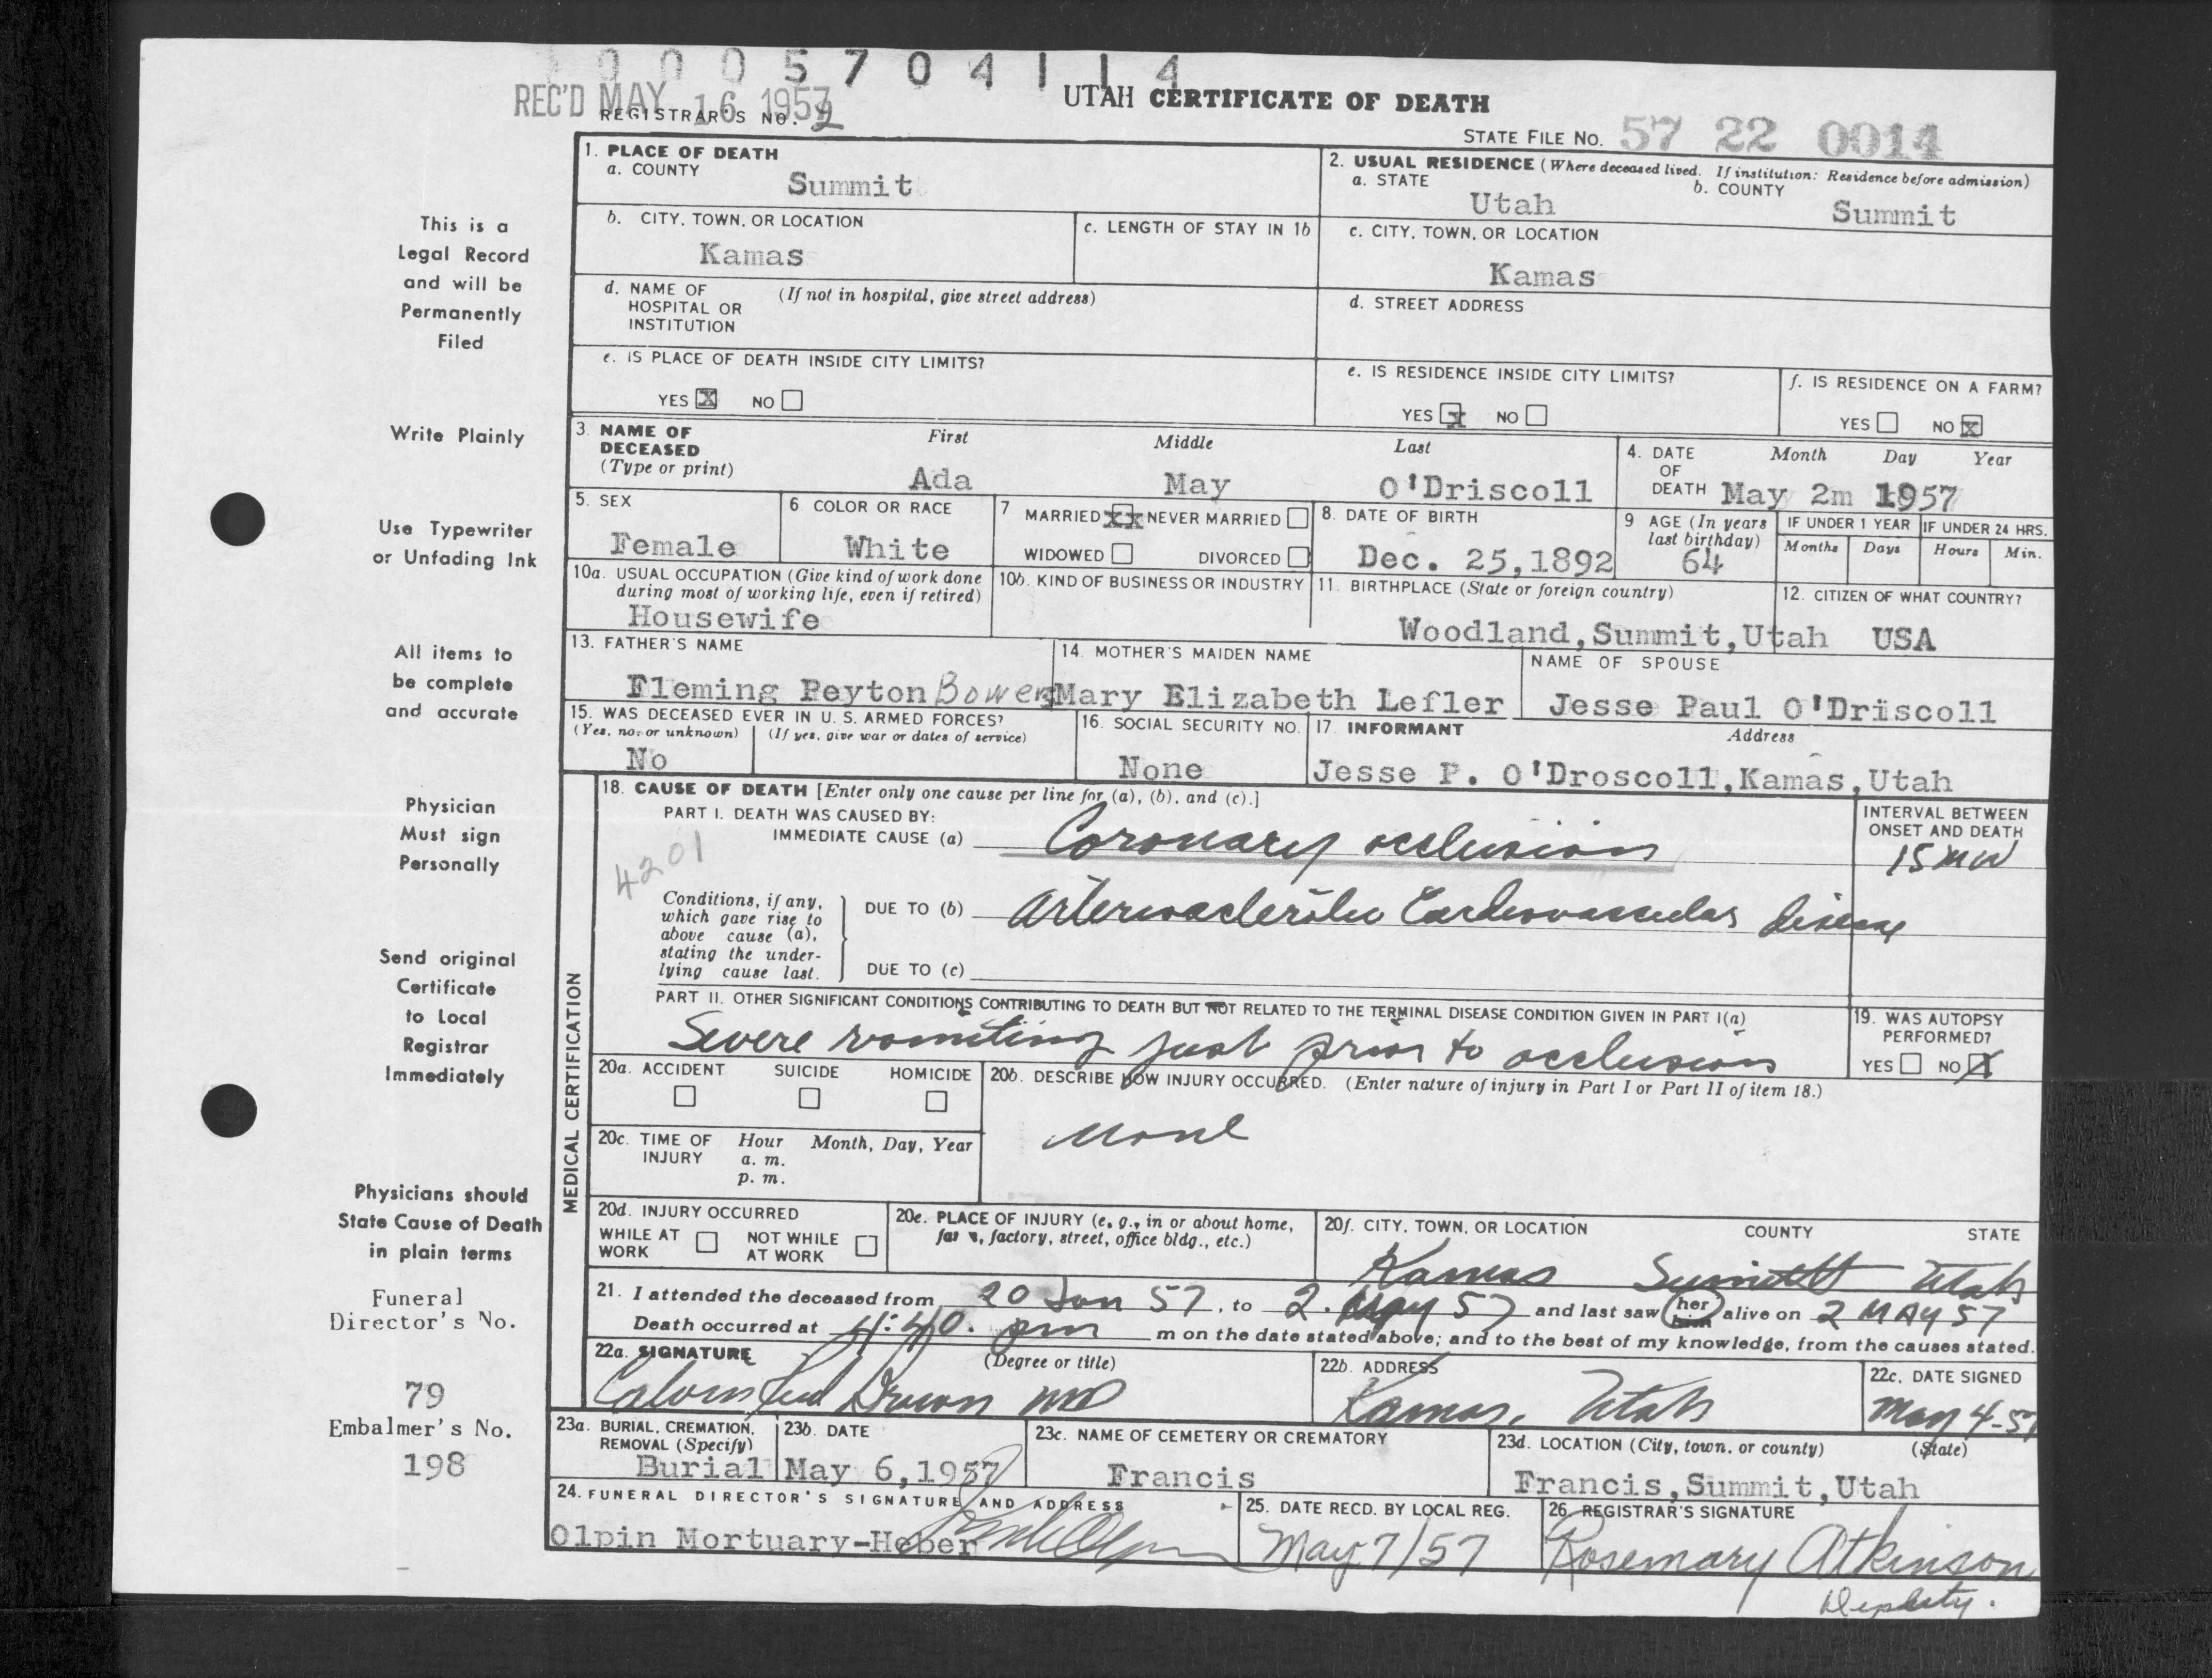 0 0 0 5 7 0 4 1 1 4
REC'D MAY 16 1957
REGISTRAR'S NO. 2
UTAH CERTIFICATE OF DEATH
STATE FILE NO. 57 22 0014
1. PLACE OF DEATH
a. COUNTY
Summit
2. USUAL RESIDENCE (Where deceased lived. If institution: Residence before admission)
a. STATE
Utah
b. COUNTY
Summit
b. CITY, TOWN, OR LOCATION
Kamas
c. LENGTH OF STAY IN 1b
c. CITY, TOWN, OR LOCATION
Kamas
d. NAME OF HOSPITAL OR INSTITUTION
(If not in hospital, give street address)
d. STREET ADDRESS
e. IS PLACE OF DEATH INSIDE CITY LIMITS?
YES X NO
e. IS RESIDENCE INSIDE CITY LIMITS?
YES X NO
f. IS RESIDENCE ON A FARM?
YES NO X
3. NAME OF DECEASED
(Type or print)
First Middle Last
Ada May O'Driscoll
4. DATE OF DEATH
Month Day Year
May 2m 1957
5. SEX
Female
6. COLOR OR RACE
White
7 MARRIED XX NEVER MARRIED
WIDOWED DIVORCED
8. DATE OF BIRTH
Dec. 25,1892
9 AGE (In years last birthday)
64
IF UNDER 1 YEAR
Months Days
IF UNDER 24 HRS.
Hours Min.
10a. USUAL OCCUPATION (Give kind of work done during most of working life, even if retired)
Housewife
10b. KIND OF BUSINESS OR INDUSTRY
11. BIRTHPLACE (State or foreign country)
Woodland,Summit,Utah
12. CITIZEN OF WHAT COUNTRY?
USA
13. FATHER'S NAME
Fleming Peyton Bowen
14. MOTHER'S MAIDEN NAME
Mary Elizabeth Lefler
NAME OF SPOUSE
Jesse Paul O'Driscoll
15. WAS DECEASED EVER IN U. S. ARMED FORCES?
(Yes, no, or unknown) (If yes, give war or dates of service)
No
16. SOCIAL SECURITY NO.
None
17. INFORMANT Address
Jesse P. O'Droscoll,Kamas,Utah
MEDICAL CERTIFICATION
18. CAUSE OF DEATH [Enter only one cause per line for (a), (b), and (c).]
PART I. DEATH WAS CAUSED BY:
IMMEDIATE CAUSE (a) Coronary occlusion
4201
INTERVAL BETWEEN ONSET AND DEATH
15 MIN
Conditions, if any, which gave rise to above cause (a), stating the underlying cause last.
DUE TO (b) Arteriosclerotic Cardiovascular disease
DUE TO (c)
PART II. OTHER SIGNIFICANT CONDITIONS CONTRIBUTING TO DEATH BUT NOT RELATED TO THE TERMINAL DISEASE CONDITION GIVEN IN PART I(a)
Severe vomiting just prior to occlusion
19. WAS AUTOPSY PERFORMED?
YES NO X
20a. ACCIDENT SUICIDE HOMICIDE
20b. DESCRIBE HOW INJURY OCCURRED. (Enter nature of injury in Part I or Part II of item 18.)
None
20c. TIME OF INJURY
Hour Month, Day, Year
a. m.
p. m.
20d. INJURY OCCURRED
WHILE AT WORK NOT WHILE AT WORK
20e. PLACE OF INJURY (e. g., in or about home, farm, factory, street, office bldg., etc.)
20f. CITY, TOWN, OR LOCATION COUNTY STATE
Kamas Summitt Utah
21. I attended the deceased from 20 Jan 57, to 2 May 57 and last saw her him alive on 2 MAY 57
Death occurred at 4:40 pm m on the date stated above; and to the best of my knowledge, from the causes stated.
22a. SIGNATURE (Degree or title)
MD
22b. ADDRESS
Kamas, Utah
22c. DATE SIGNED
May 4-57
23a. BURIAL, CREMATION, REMOVAL (Specify)
Burial
23b. DATE
May 6,1957
23c. NAME OF CEMETERY OR CREMATORY
Francis
23d. LOCATION (City, town, or county) (State)
Francis,Summit,Utah
24. FUNERAL DIRECTOR'S SIGNATURE AND ADDRESS
Olpin Mortuary-Heber
25. DATE RECD. BY LOCAL REG.
May 7/57
26 REGISTRAR'S SIGNATURE
Rosemary Atkinson
Deputy.
This is a
Legal Record
and will be
Permanently
Filed
Write Plainly
Use Typewriter
or Unfading Ink
All items to
be complete
and accurate
Physician
Must sign
Personally
Send original
Certificate
to Local
Registrar
Immediately
Physicians should
State Cause of Death
in plain terms
Funeral
Director's No.
79
Embalmer's No.
198